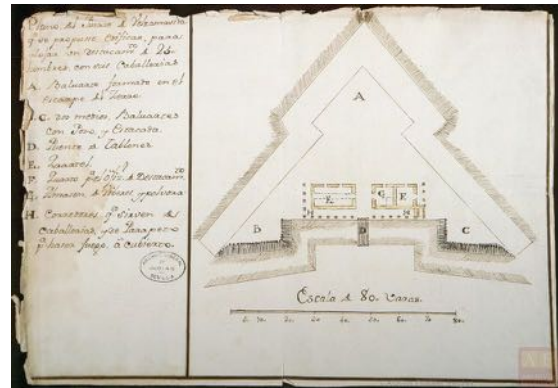 Plano del Puesto de
q.e se propone edificar, para
alojar un Destacam.to de 26
hombres con sus Caballerias
A. Baluarte formado en el
escarpe del Terreno
B.C. dos medios Baluartes
con Foso, y Estacada
D. Puente de Tablones
E. Quartel
F. Quarto p.a el Ofiz.l de Destacam.to
G. Almacen de Viveres y polvora
H. Corredores, q.e sirven de
Caballerizas, y de Parapeto
p.a hacer fuego, a cubierto.
A
E
G
F
H
H
B
D
C
Escala de 80. Varas.